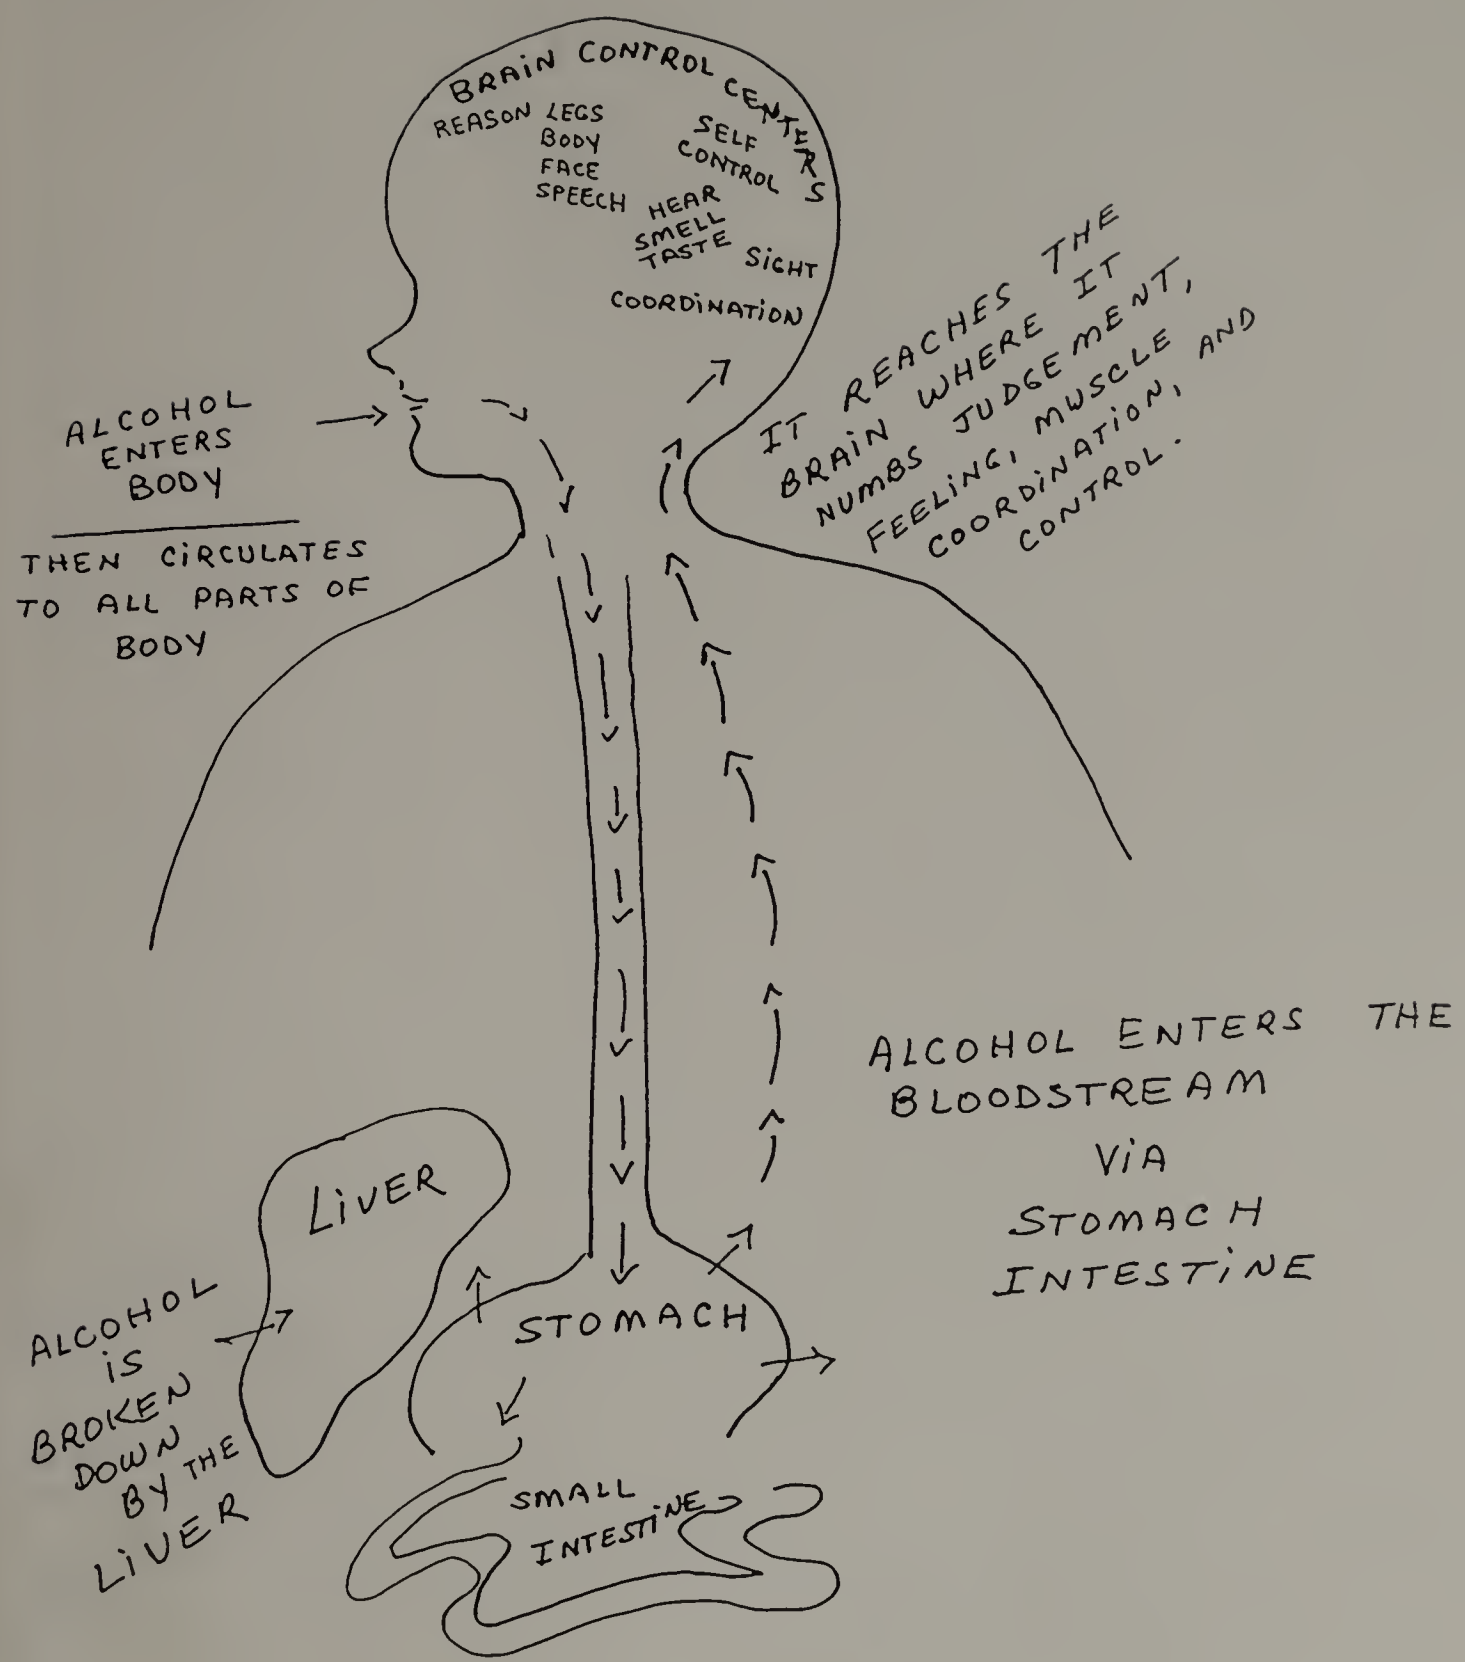 BRAIN CONTROL CENTERS
REASON
LEGS
BODY
FACE
SPEECH
SELF
CONTROL
HEAR
SMELL
TASTE
SIGHT
COORDINATION
ALCOHOL
ENTERS
BODY
THEN CIRCULATES
TO ALL PARTS OF
BODY
IT REACHES THE
BRAIN WHERE IT
NUMBS JUDGEMENT,
FEELING, MUSCLE
COORDINATION, AND
CONTROL.
ALCOHOL ENTERS THE
BLOODSTREAM
VIA
STOMACH
INTESTINE
LIVER
ALCOHOL
IS
BROKEN
DOWN
BY THE
LIVER
STOMACH
SMALL
INTESTINE